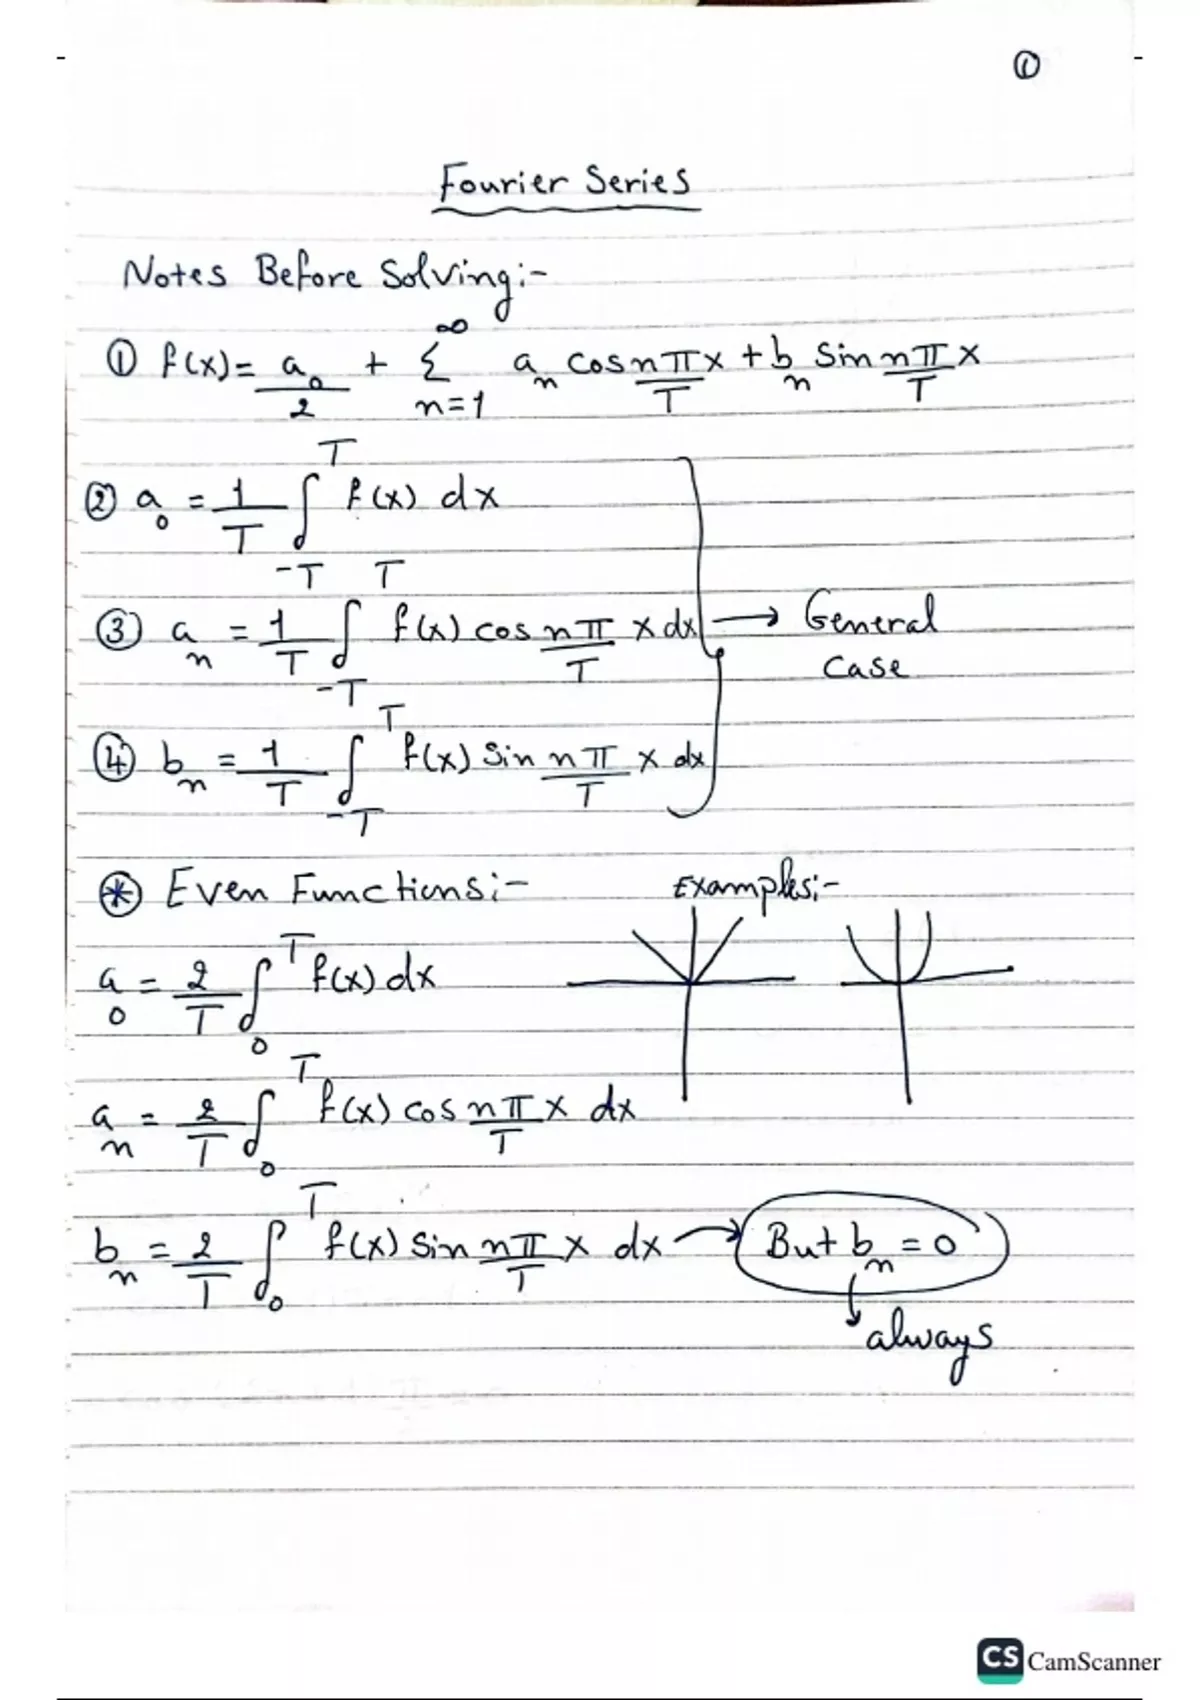 ①
Fourier Series
Notes Before Solving:-
① f(x) = a₀/2 + Σ_{n=1}^{∞} aₙ cos nπ/T x + bₙ sin nπ/T x
② a₀ = 1/T ∫_{-T}^{T} f(x) dx
③ aₙ = 1/T ∫_{-T}^{T} f(x) cos nπ/T x dx → General
case
④ bₙ = 1/T ∫_{-T}^{T} f(x) sin nπ/T x dx
⊛ Even Functions:- Examples:-
a₀ = 2/T ∫_{0}^{T} f(x) dx
aₙ = 2/T ∫_{0}^{T} f(x) cos nπ/T x dx
bₙ = 2/T ∫_{0}^{T} f(x) sin nπ/T x dx → But bₙ = 0
always
CS CamScanner